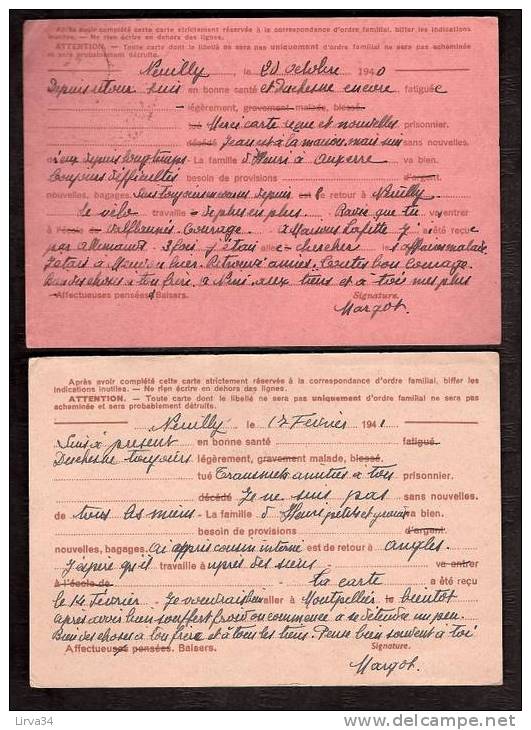 Après avoir complété cette carte strictement réservée à la correspondance d'ordre familial, biffer les indications
inutiles. — Ne rien écrire en dehors des lignes.
ATTENTION. - Toute carte dont le libellé ne sera pas uniquement d'ordre familial ne sera pas acheminée
et sera probablement détruite.
Neuilly, le 20 octobre 1940
Depuis retour suis en bonne santé et Duchesne encore fatiguée
légèrement, gravement malade, blessé.
tué Merci carte reçue et nouvelles prisonnier.
décédé Jean est à la maison, mais sans nouvelles.
d'eux depuis longtemps - La famille d'Henri à Auxerre va bien.
Toujours difficultés besoin de provisions d'argent.
nouvelles, bagages. depuis le retour à Neuilly
le vélo travaille de plus en plus. que tu va entrer
à l'école de Courage à Maisons Lafitte j'ai été reçue
par allemands 3 fois j'étais allée chercher malade
J'étais à hier. Retrouvé amies. bon courage.
Bien des choses à ton frère, à aux tiens et à toi mes plus
Affectueuses pensées & Baisers. Signature.
Margot.
Après avoir complété cette carte strictement réservée à la correspondance d'ordre familial, biffer les
indications inutiles. — Ne rien écrire en dehors des lignes.
ATTENTION. — Toute carte dont le libellé ne sera pas uniquement d'ordre familial ne sera pas
acheminée et sera probablement détruite.
Neuilly le 17 Février 1941
Suis à présent en bonne santé fatigué.
Duschesne toujours légèrement, gravement malade, blessé.
tué Transmets amitiés à tous prisonnier.
décédé Je ne suis pas sans nouvelles.
de tous les miens - La famille d'Henri petits et grands va bien.
besoin de provisions d'argent.
nouvelles, bagages. ai appris cousin interné est de retour à Angles.
J'espère qu'il travaille auprès des siens va entrer
à l'école de ta carte a été reçu
le 14 Février - Je voudrais bien aller à Montpellier le bientôt
après avoir bien souffert froid on commence à se détendre un peu.
Bien des choses à ton frère et à tous les tiens. Pense bien souvent à toi
Affectueuses pensées. Baisers. Signature.
Margot.
Lirva34
delcampe.net